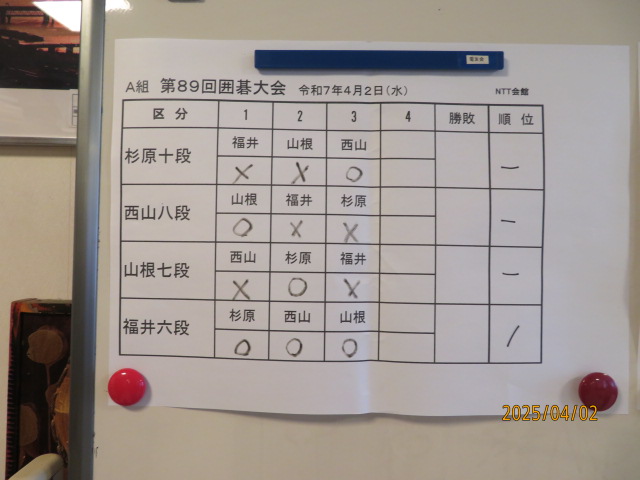 A組 第89回囲碁大会 令和7年4月2日(水) NTT会館
区 分 1 2 3 4 勝敗 順 位
杉原十段 福井 山根 西山
× × ○ 一
西山八段 山根 福井 杉原
○ × × 一
山根七段 西山 杉原 福井
× ○ × 一
福井六段 杉原 西山 山根
○ ○ ○ /
2025/04/02